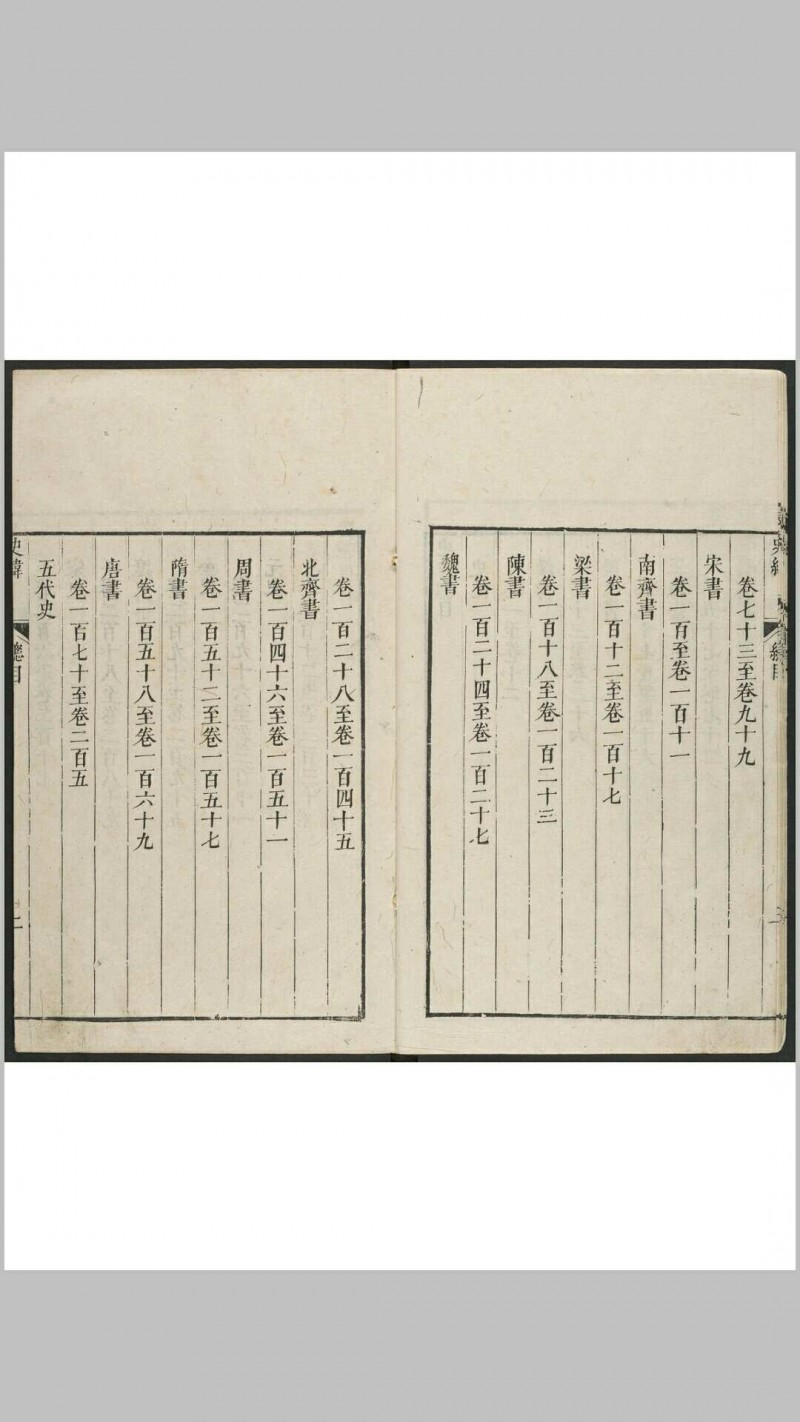 卷七十三至卷九十九
宋書
卷一百至卷一百十一
南齊書
卷一百十二至卷一百十七
梁書
卷一百十八至卷一百二十三
陳書
卷一百二十四至卷一百二十七
魏書
卷一百二十八至卷一百四十五
北齊書
卷一百四十六至卷一百五十一
周書
卷一百五十二至卷一百五十七
隋書
卷一百五十八至卷一百六十九
唐書
卷一百七十至卷二百五
五代史
史緯
總目